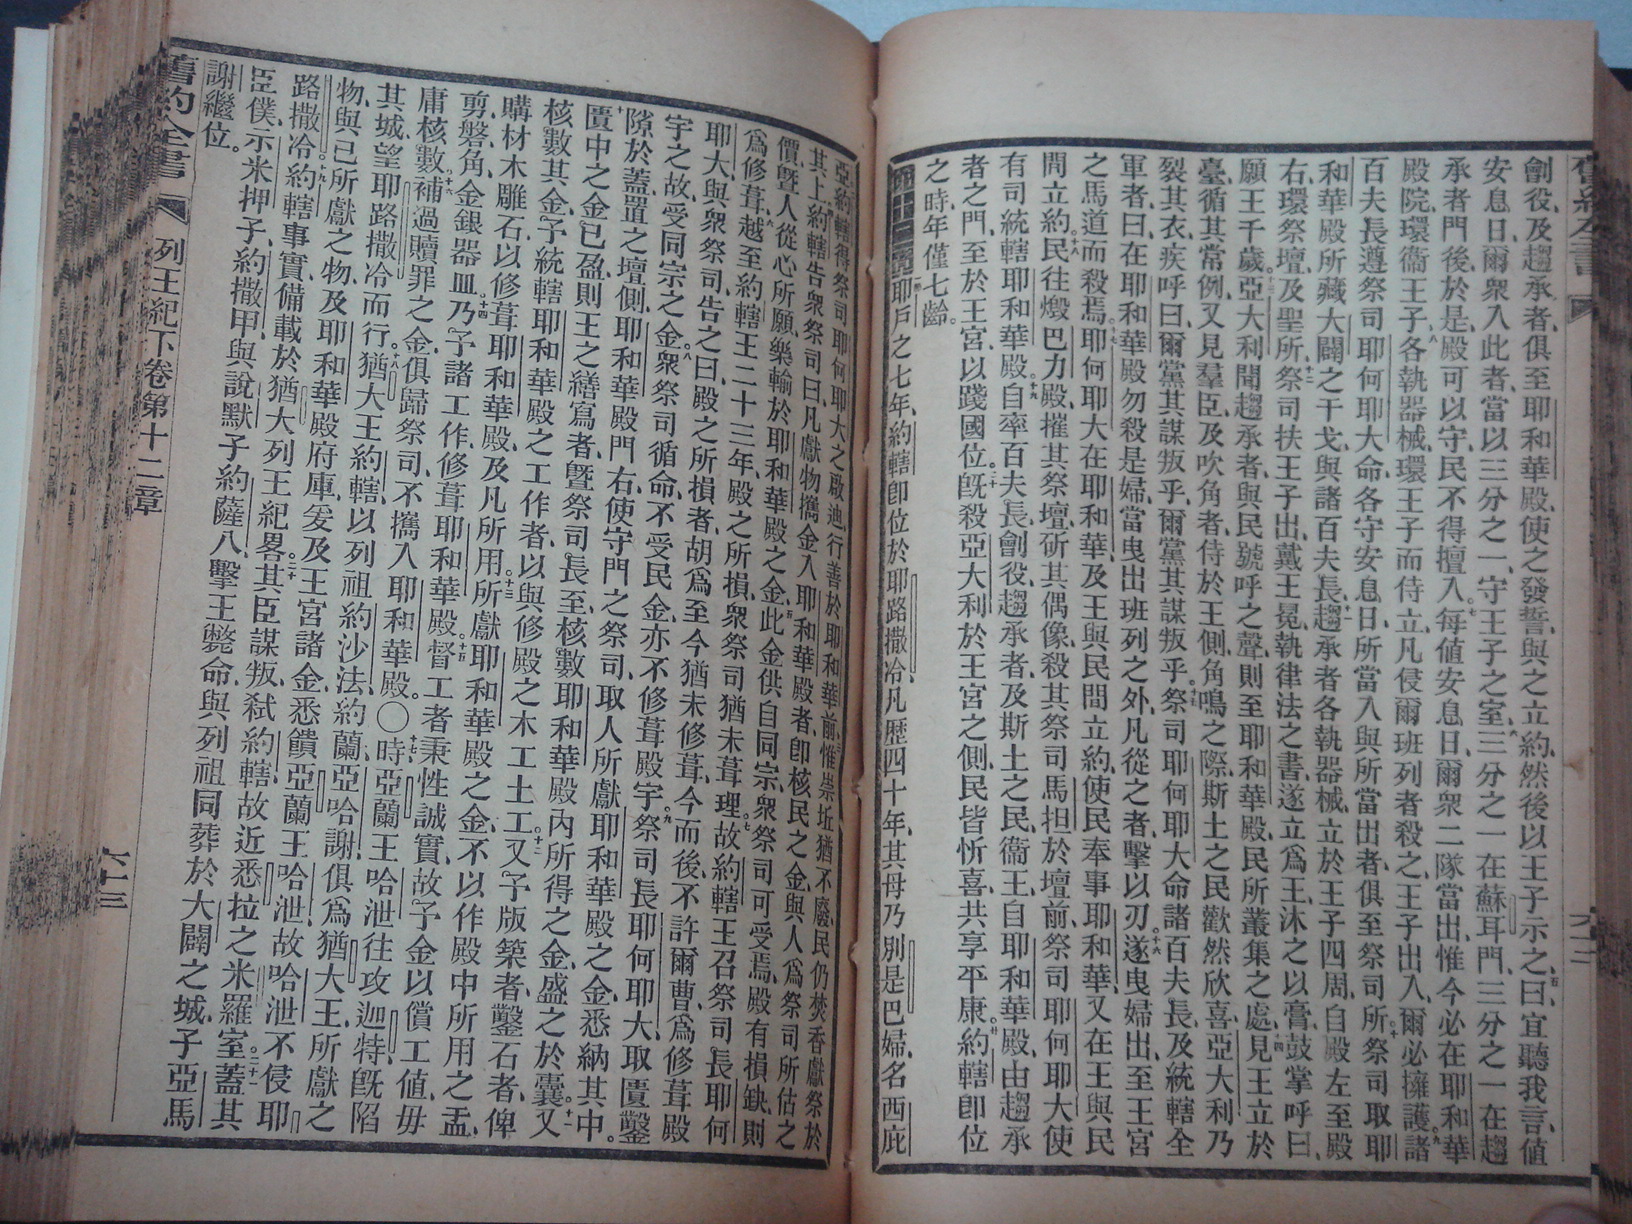 劊役、及趨承者、俱至耶和華殿、使之發誓、與之立約、然後以王子示之、五曰、宜聽我言、値
安息日、爾衆入此者、當以三分之一、守王子之室、六三分之一在蘇耳門、三分之一在趨
承者門後、於是殿可以守、民不得擅入、七每値安息日、爾衆二隊當出、惟今必在耶和華
殿院、環衞王子、八各執器械、環王子而侍立、凡侵爾班列者殺之、王子出入、爾必擁護、九諸
百夫長遵祭司耶何耶大命、各守安息日所當入、與所當出者、俱至祭司所、十祭司取耶
和華殿所藏大闢之干戈、與諸百夫長、十一趨承者各執器械、立於王子四周、自殿左至殿
右、環祭壇、及聖所、十二祭司扶王子出、戴王冕、執律法之書、遂立爲王、沐之以膏、鼓掌呼曰、
願王千歲、十三亞大利聞趨承者、與民號呼之聲、則至耶和華殿、民所叢集之處、十四見王立於
臺、循其常例、又見羣臣、及吹角者、侍於王側、角鳴之際、斯土之民、歡然欣喜、亞大利乃
裂其衣、疾呼曰、爾黨其謀叛乎、爾黨其謀叛乎、十五祭司耶何耶大命諸百夫長、及統轄全
軍者曰、在耶和華殿勿殺是婦、當曳出班列之外、凡從之者、擊以刃、十六遂曳婦出、至王宮
之馬道而殺焉、十七耶何耶大在耶和華、及王與民間立約、使民奉事耶和華、又在王與民
間立約、十八民往燬巴力殿、摧其祭壇、斫其偶像、殺其祭司馬担於壇前、祭司耶何耶大使
有司統轄耶和華殿、十九自率百夫長、劊役、趨承者、及斯土之民、衞王、自耶和華殿、由趨承
者之門、至於王宮、以踐國位、二十旣殺亞大利於王宮之側、民皆忻喜、共享平康、廿一約轄卽位
之時、年僅七齡。
第十二章 一耶戶之七年、約轄卽位於耶路撒冷、凡歷四十年、其母乃別是巴婦、名西庇
亞、二約轄得祭司耶何耶大之啟迪、行善於耶和華前、三惟崇坵猶不廢、民仍焚香獻祭於
其上、四約轄告衆祭司曰、凡獻物攜金入耶和華殿者、卽核民之金、與人爲祭司所估之
價、曁人從心所願、樂輸於耶和華殿之金、五此金供自同宗、衆祭司可受焉、殿有損缺、則
爲修葺、六越至約轄王二十三年、殿之所損、衆祭司猶未葺理、七故約轄王召祭司長耶何
耶大、與衆祭司、告之曰、殿之所損者、胡爲至今猶未修葺、今而後、不許爾曹、爲修葺殿
宇之故、受同宗之金、八衆祭司循命、不受民金、亦不修葺殿宇、九祭司長耶何耶大、取匱鑿
隙於蓋、置之壇側、耶和華殿門右、使守門之祭司、取人所獻耶和華殿之金、悉納其中。
十匱中之金已盈、則王之繕寫者、曁祭司長至、核數耶和華殿內所得之金、盛之於囊、十一又
核數其金、予統轄耶和華殿之工作者、以與修殿之木工土工、十二又予版築者、鑿石者、俾
購材木雕石、以修葺耶和華殿、及凡所用、十三所獻耶和華殿之金、不以作殿中所用之盂、
剪、磐、角、金銀器皿、十四乃予諸工作、修葺耶和華殿、十五督工者秉性誠實、故予金以償工値、毋
庸核數、十六補過贖罪之金、俱歸祭司、不攜入耶和華殿。〇十七時亞蘭王哈泄往攻迦特、旣陷
其城、望耶路撒冷而行、十八猶大王約轄、以列祖約沙法、約蘭、亞哈謝、俱爲猶大王、所獻之
物、與己所獻之物、及耶和華殿府庫、爰及王宮諸金、悉饋亞蘭王哈泄、故哈泄不侵耶
路撒冷、十九約轄事實、備載於猶大列王紀畧、二十其臣謀叛、弑約轄、故近悉拉之米羅室、二十一蓋其
臣僕示米押子、約撒甲、與說默子約薩八、擊王斃命、與列祖同葬於大闢之城、子亞馬
謝繼位。
舊約全書 列王紀下卷第十二章 六十三